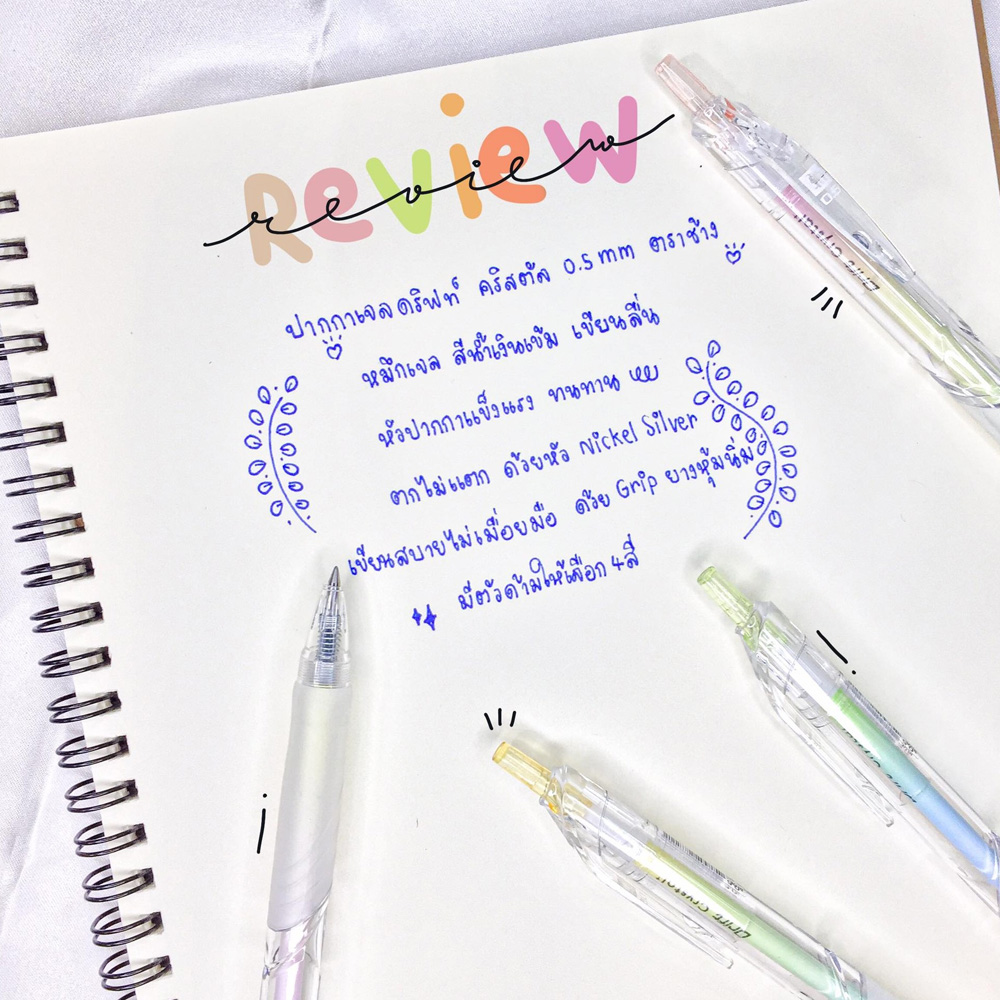 Review
review
ปากกาเจลดริฟท์ คริสตัล 0.5 mm ตราช้าง
หมึกเจล สีน้ำเงินเข้ม เขียนลื่น
หัวปากกาแข็งแรง ทนทาน
ตกไม่แตก ด้วยหัว Nickel Silver
เขียนสบายไม่เมื่อยมือ ด้วย Grip ยางหุ้มนิ่ม
มีตัวด้ามให้เลือก 4 สี
Drift Crystal
Drift Crystal
Drift Crystal